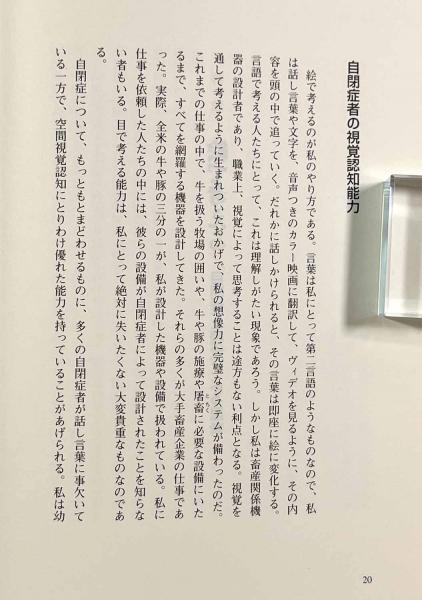 自閉症者の視覚認知能力
絵で考えるのが私のやり方である。言葉は私にとって第二言語のようなものなので、私
は話し言葉や文字を、音声つきのカラー映画に翻訳して、ヴィデオを見るように、その内
容を頭の中で追っていく。だれかに話しかけられると、その言葉は即座に絵に変化する。
言語で考える人たちにとって、これは理解しがたい現象であろう。しかし私は畜産関係機
器の設計者であり、職業上、視覚によって思考することは途方もない利点となる。視覚を
通して考えるように生まれついたおかげで、私の想像力に完璧なシステムが備わったのだ。
これまでの仕事の中で、牛を扱う牧場の囲いや、牛や豚の施療や屠畜に必要な設備にいた
るまで、すべてを網羅する機器を設計してきた。それらの多くが大手畜産企業の仕事であ
った。実際、全米の牛や豚の三分の一が、私が設計した機器や設備で扱われている。私に
仕事を依頼した人たちの中には、彼らの設備が自閉症者によって設計されたことを知らな
い者もいる。目で考える能力は、私にとって絶対に失いたくない大変貴重なものなのであ
る。
自閉症について、もっともとまどわせるものに、多くの自閉症者が話し言葉に事欠いて
いる一方で、空間視覚認知にとりわけ優れた能力を持っていることがあげられる。私は幼
20